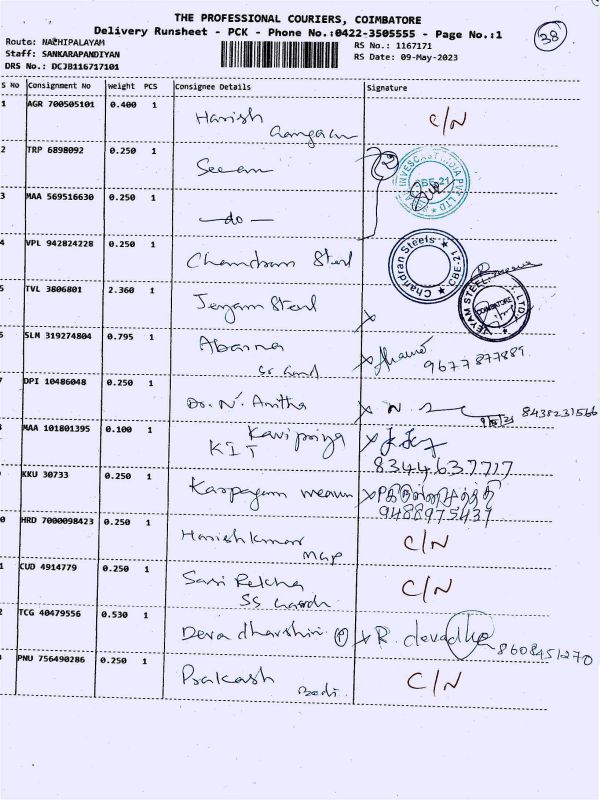 THE PROFESSIONAL COURIERS, COIMBATORE
Delivery Runsheet - PCK - Phone No.:0422-3505555 - Page No.:1
38
Route: NACHIPALAYAM
RS No.: 1167171
Staff: SANKARAPANDIYAN
RS Date: 09-May-2023
DRS No.: DCJB116717101
S No Consignment No Weight PCS Consignee Details Signature
1 AGR 700505101 0.400 1 Harish C/N
2 TRP 6898092 0.250 1
INVESCAST INDIA PVT LTD
3 MAA 569516630 0.250 1 - do -
4 VPL 942824228 0.250 1 Chandran Steel
Chandran Steels CBE-21
5 TVL 3806801 2.360 1 Jeyam Steel X
JEYAM STEEL COIMBATORE
6 SLM 319274804 0.795 1 Abarna X
9677877889
7 DPI 10486048 0.250 1 Dr. N. Anitha X N. 8438231566
8 MAA 101801395 0.100 1 Kavipriya X
KIT
8344637717
KKU 30733 0.250 1 Karpagam X
9488975437
0 HRD 7000098423 0.250 1 Harishkumar C/N
1 CUD 4914779 0.250 1 Sasi Rekha C/N
SS
2 TCG 40479556 0.530 1 Deva dharshini (P) X R. devadha
8608451270
PNU 756490286 0.250 1 Prakash C/N